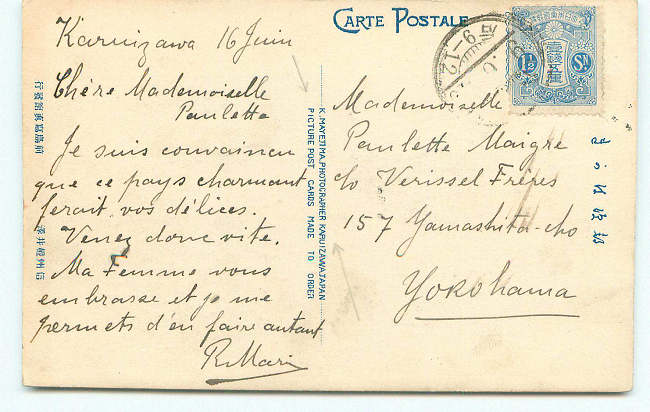 CARTE POSTALE
Karuizawa 16 Juin
Chère Mademoiselle
Paulette
Je suis convaincu
que ce pays charmant
ferait vos délices.
Venez donc vite.
Ma Femme vous
embrasse et je me
permets d'en faire autant
R. Mari
K. MAYEJIMA, PHOTOGRAPHER KARUIZAWA, JAPAN
PICTURE POST CARDS MADE TO ORDER
Mademoiselle
Paulette Maigre
c/o Verissel Frères
157 Yamashita-cho
Yokohama
9-12
1½ Sn.
きがは便郵